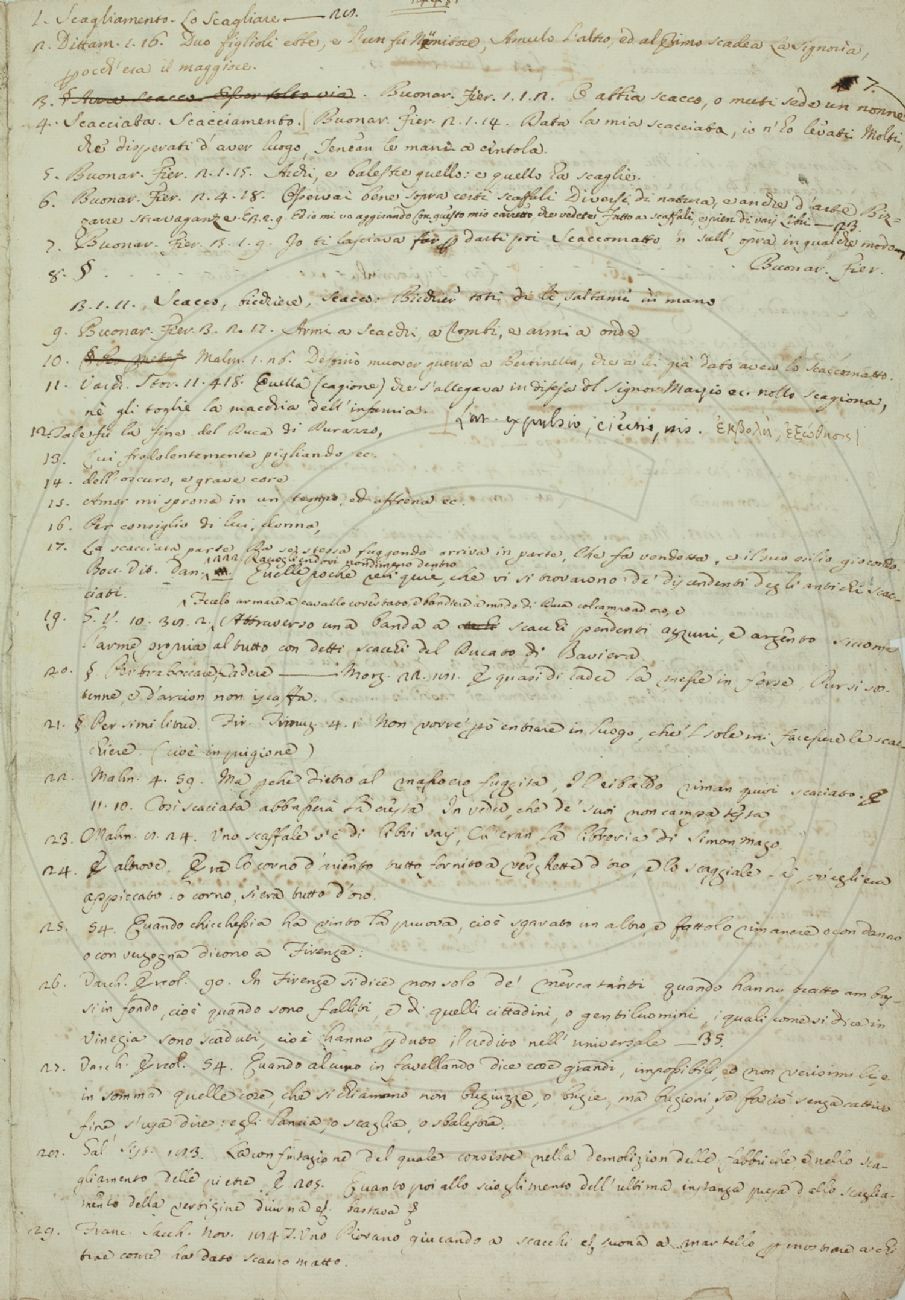 1. Scagliamento. Lo Scagliare
2. Dittam. 1. 16. Duo figlioli ebbe, e l'un fu Numitore, Amulo l'altro, ed al primo scadea la Signoria,
perocch'era il maggiore.
7.
3. Buonar. Fier. 1. 1. 2. E abbia scacco, o muti sede un
4. Scacciata. Scacciamento. Buonar. Fier. 2. 1. 14. Data la mia scacciata, io n'ho levati Molti,
che disperati d'aver luogo, Tenean le mani a cintola.
5. Buonar. Fier. 2. 1. 15. Archi, e balestre quello: e quello ha scaglie.
6. Buonar. Fier. 2. 4. 18. Osservai bene sopra certi scaffali Diversi di natura, e anche d'arte Biz-
zarre stravaganze E Ed io mi vo aggirando Con questo mio carretto, che vedete Fatto a scaffali, e pien di varj Libri
7. Buonar. Fier. 3. 1. 9. Io ti lasciava per darti poi Scaccomatto 'n sull' opra in qualche modo
8. § Buonar. Fier.
3. 1. 11. Scacco, bicchiere, scacco: Bicchier tott, di le, saltami in mano
9. Buonar. Fier. 3. 2. 17. Armi a scacchi, a rombi, e armi a onde
10. Malm. 1. 26. Desinò muover guerra a Bertinella, che a lei già dato avea lo scaccomatto.
11. Varch. Stor. 11. 418. Quella (cagione) che s'allegava in difesa del Signor Marzio ec. nollo scagiona,
nè gli toglie la macchia dell'infamia. Lat. expulsio, eiectio, nis. ἐκβολὴ, ἐξώθησις
12. Tale fu la fine del Duca di Durazzo,
13. Cui frodolentemente pigliando ec.
14. dell'oscuro, e grave core
15. Amor mi sprona in un tempo, ed affrena ec.
16. Per consiglio di lui, donna,
17. La scacciata parte Da se stessa fuggendo arriva in parte, Che fa vendetta, e il suo esilio giocondo.
Bocc. Vit. Dan. Raccogliendovi nondimeno dentro Quelle poche reliquie, che vi si trovarono de' discendenti degli antichi scac-
ciati.
Fecelo armare a cavallo covertato, e bandiera a modo di Duca col campo ad oro, e
19. G. V. 10. Attraverso una banda a scacchi pendenti azzurri, e argento siccome
l'arme propria al tutto con detti scacchi del Ducato di Baviera
20. § Per traboccare, Cadere Morg. 22. E quasi di cader la messe in forse, Pur si sos-
tenne, e d'arcion non iscaffa.
21. § Per similitud. Fir. Trinuz. 4. 1. Non vorre' però entrare in luogo, che 'l sole mi facessere le scac-
chiere. (cioè in prigione)
22. Malm. 4. 59. Ma perche dietro al maschio fuggita, Il ribaldo riman quivi scaciato. E
11. 10. Così scaciata abbassera la cresta In veder, che de' suoi non campa testa
23. Malm. 24. Uno scaffale v'è di libri varj, Ch'eran la libreria di Simon mago
24. E altrove. Era lo corno d'avento tutto fornito a verghette d'oro, e lo scaggiale
appiccato o corno, si era tutto d'oro.
25. 54. Quando chicchessia ha vinto la pruova, cioè sgarato un altro, e fattolo rimanere o con danno
o con vergogna dicono a Firenze:
26. Varch. Ercol. 90. In Firenze si dice non solo de' mercatanti quando hanno tratto ambas-
si in fondo, cioè quando sono falliti, e di quelli cittadini, o gentiluomini, i quali come si dice in
Vinegia sono scaduti, cioè hanno perduto il credito nell'universale 35.
27. Varch. Ercol. 54. Quando alcuno in favellando dice cose grandi, impossibili, e non verisimili, e
in somma quelle cose, che si chiamano non bugiuzze, o bugie, ma bugioni, se fa ciò senza cattivo
fine s'usa dire: egli lancia, o scaglia, o sbalestra.
28. Gal. Sist. La confutazione del quale consiste nella demolizion delle fabbriche e nello sca-
gliamento delle pietre, E Quanto poi allo scioglimento dell'ultima instanza presa dallo scaglia-
mento della vertigine diurna ec. bastava
29. Franc. Sacch. Nov. Uno Piovano giucando a scacchi ec. suona a martello per mostrare a chi
trae come ha dato scacco matto.